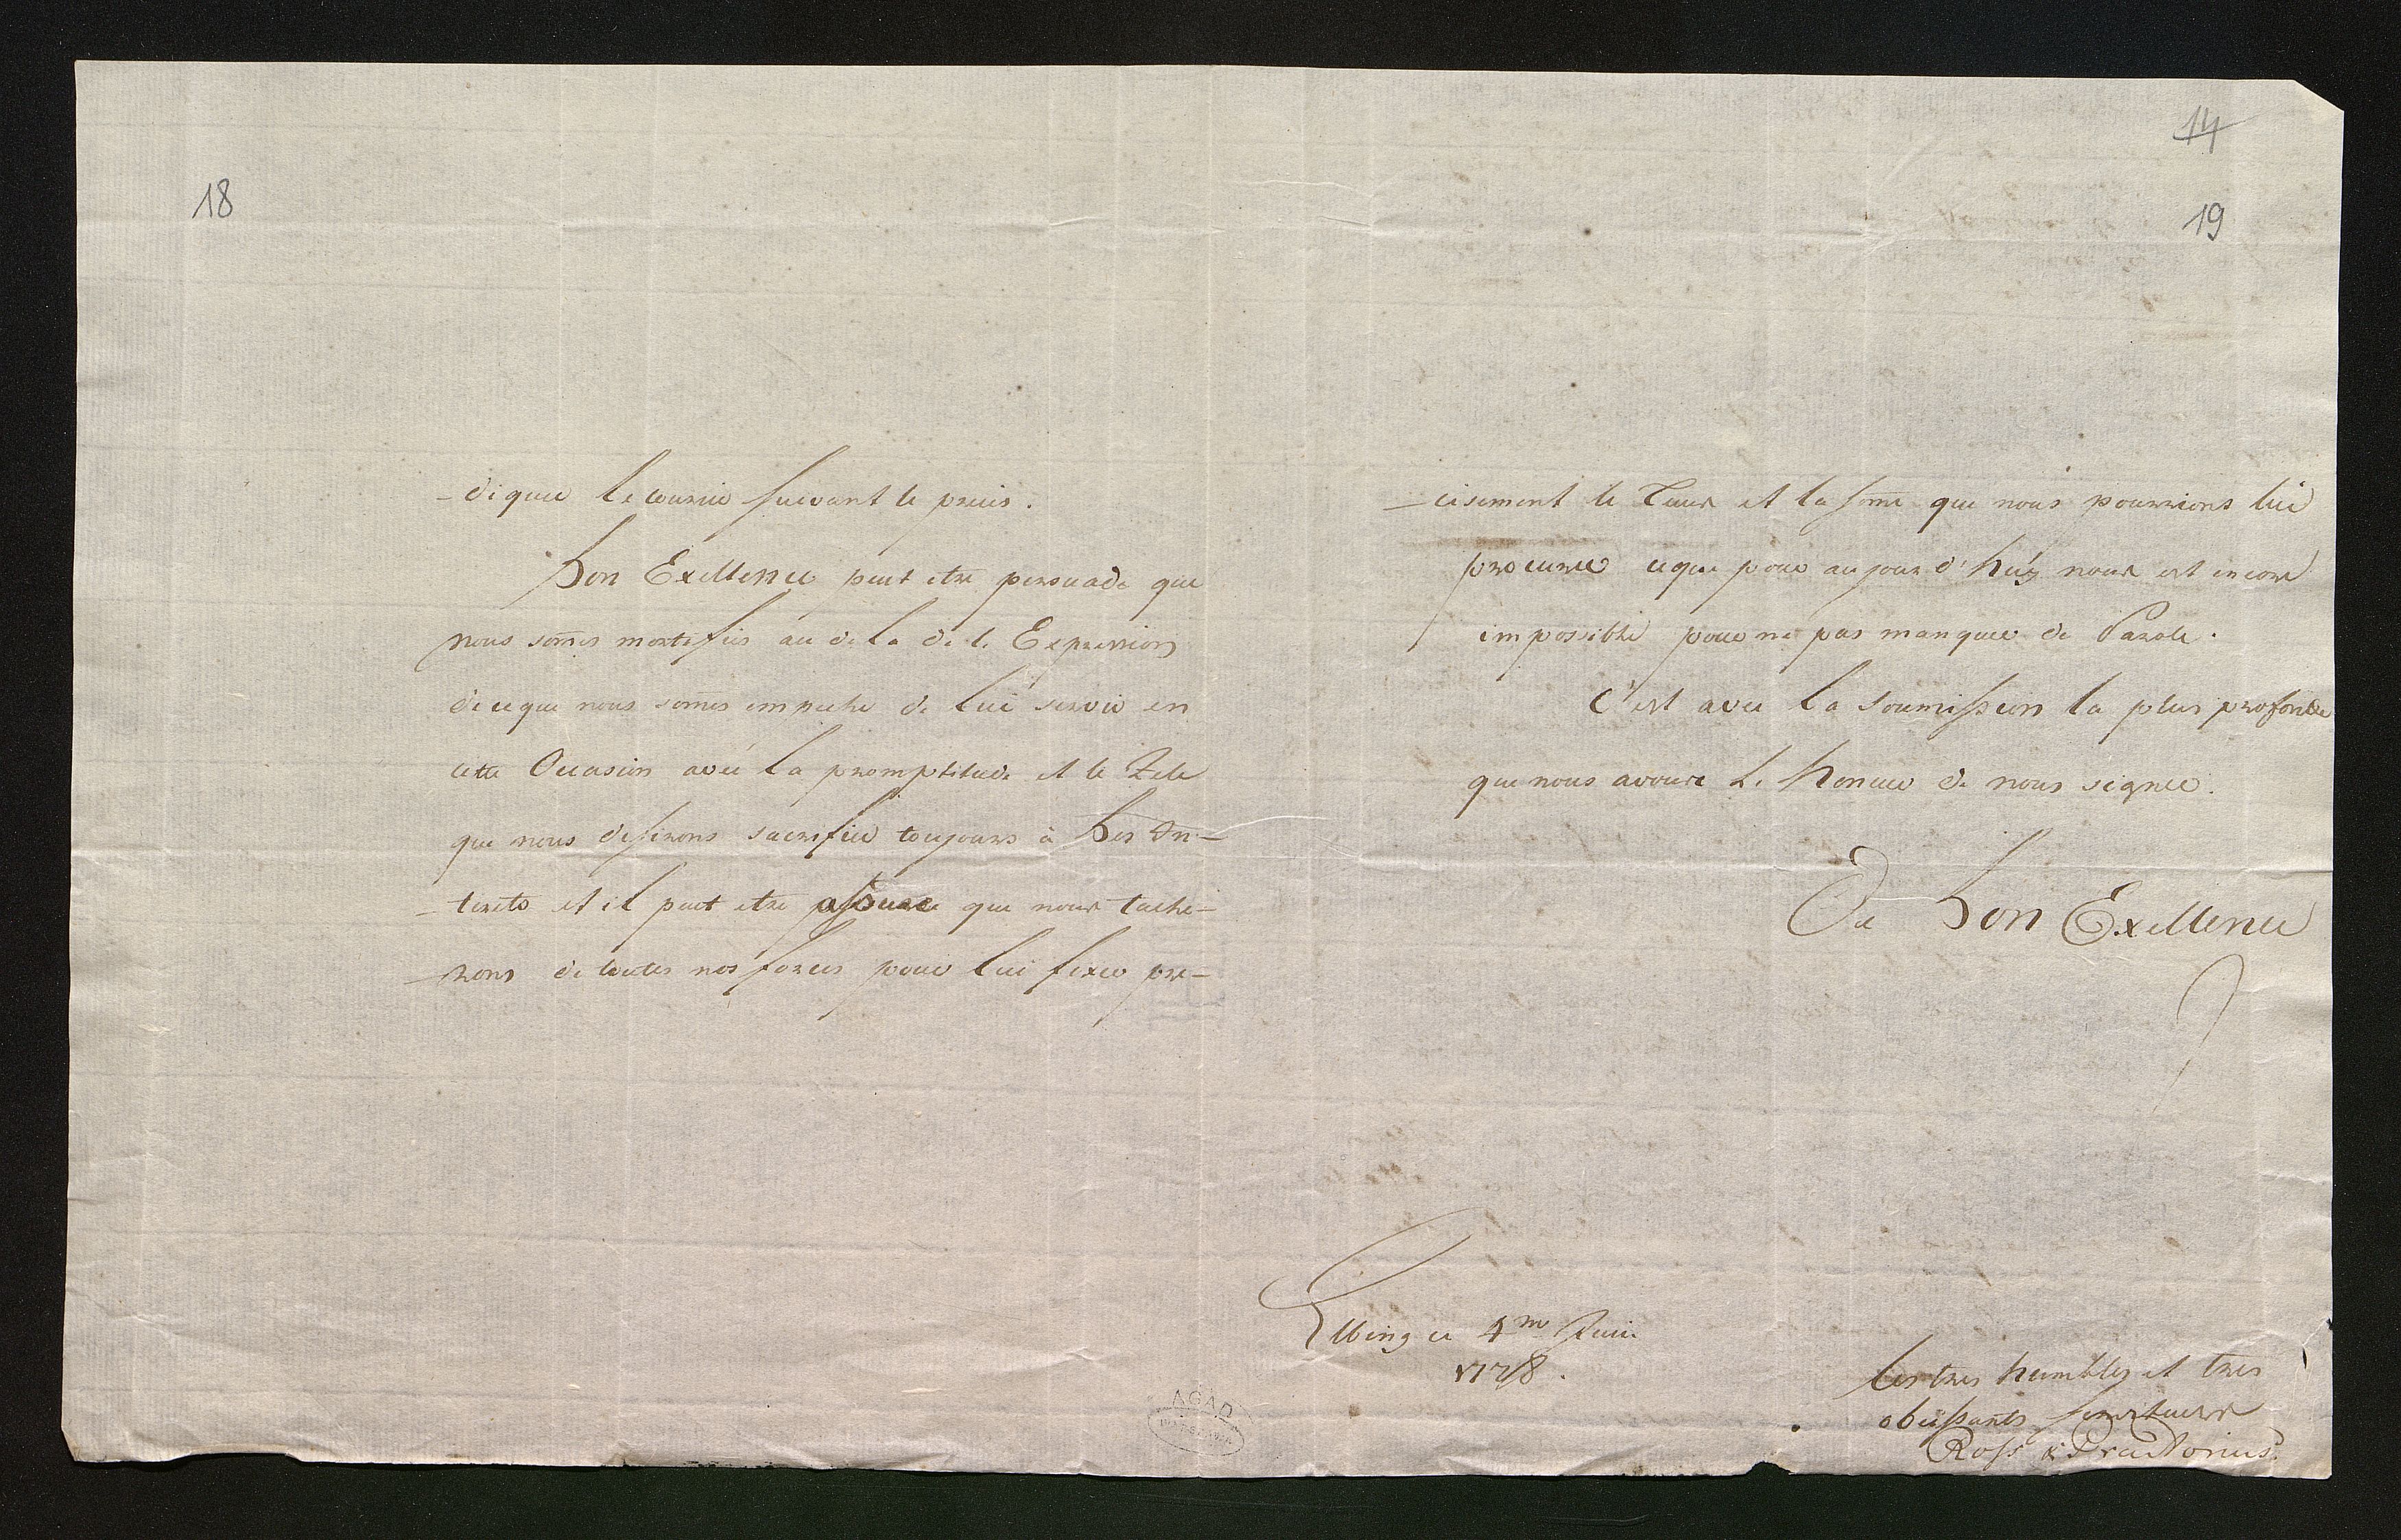 18
-diquer le courier suivant le precis.
Son Exellence peut etre persuade que
nous som̄es mortifiés au de la de l'Expression
de ce que nous som̄es empeché de lui servir en
cette Occasion avec la promptitude et le Zele
que nous desirons sacrifier toujours à Ses In-
-terets et il peut etre assuré que nous tache-
-rons de toutes nos forces pour lui fixer pre-
14
19
-cisement le Cours et la som̄e que nous pourrions lui
procurer ceque pour aujourd'huy nous est encore
impossible pour ne pas manquer de Parole.
C'est avec la soumission la plus profonde
que nous avons l'honneur de nous signer.
De Son Exellence
Elbing ce 4m Juin
1778.
les tres humbles et tres
obeissants serviteurs
Ross & Praetorius.
AGAD